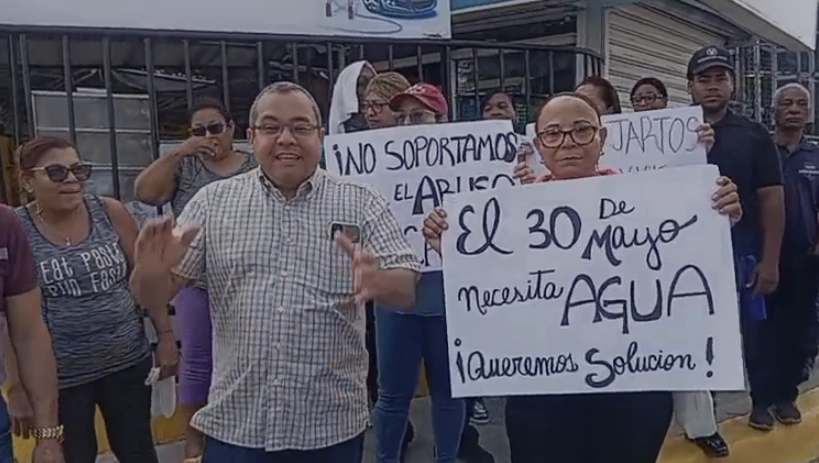 ¡NO SOPORTAMOS
EL ABUSO
JARTOS
El 30 DE
Mayo
Necesita AGUA
¡Queremos Solucion!
EAT PASTA
RUN FAST